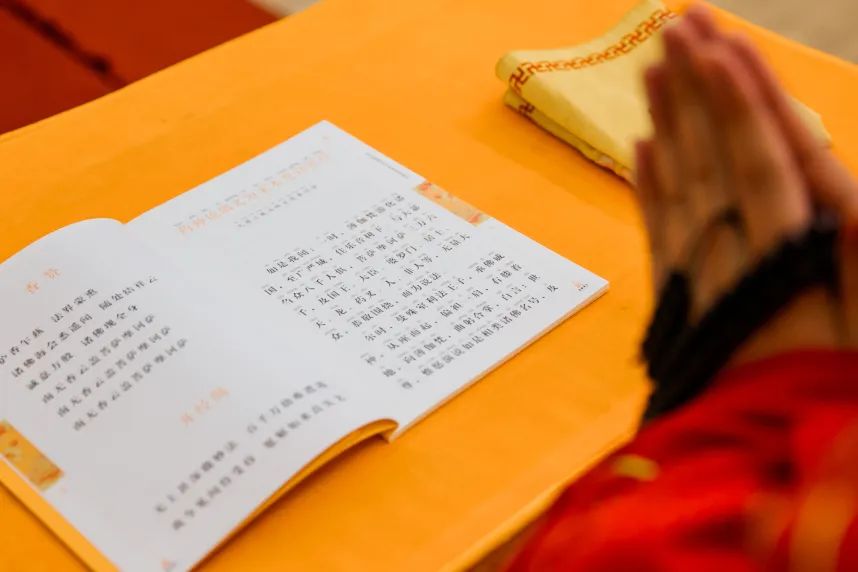 香赞
炉香乍爇　法界蒙熏
诸佛海会悉遥闻　随处结祥云
诚意方殷　诸佛现全身
南无香云盖菩萨摩诃萨
南无香云盖菩萨摩诃萨
南无香云盖菩萨摩诃萨
开经偈
无上甚深微妙法　百千万劫难遭遇
我今见闻得受持　愿解如来真实义
药师琉璃光如来本愿功德经
如是我闻：一时，薄伽梵游化诸
国，至广严城，住乐音树下。与大苾
刍众八千人俱，菩萨摩诃萨三万六
千，及国王、大臣，婆罗门、居士，
天、龙、药叉，人、非人等，无量大
众，恭敬围绕，而为说法。
尔时，曼殊室利法王子，承佛威
神，从座而起，偏袒一肩，右膝着
地，向薄伽梵，曲躬合掌，白言：世
尊，惟愿演说如是相类诸佛名号，及